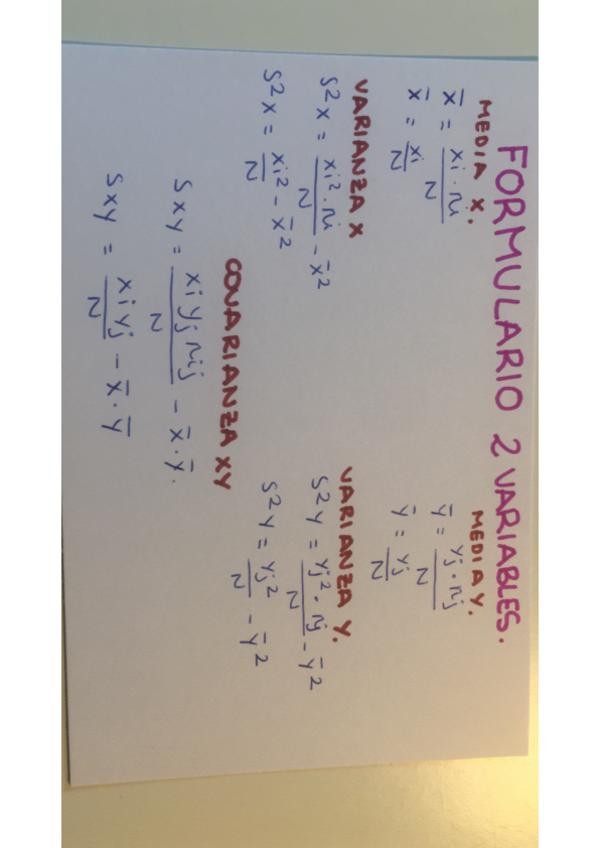 FORMULARIO 2 VARIABLES.
MEDIA X.
x̄ = xi . ni / N
x̄ = xi / N
MEDIA Y.
ȳ = yj . nj / N
ȳ = yj / N
VARIANZA X
S²x = xi² . ni / N - x̄²
S²x = xi² / N - x̄²
VARIANZA Y.
S²y = yj² . nj / N - ȳ²
S²y = yj² / N - ȳ²
COVARIANZA XY
Sxy = xi yj nij / N - x̄ . ȳ.
Sxy = xi yj / N - x̄ . ȳ